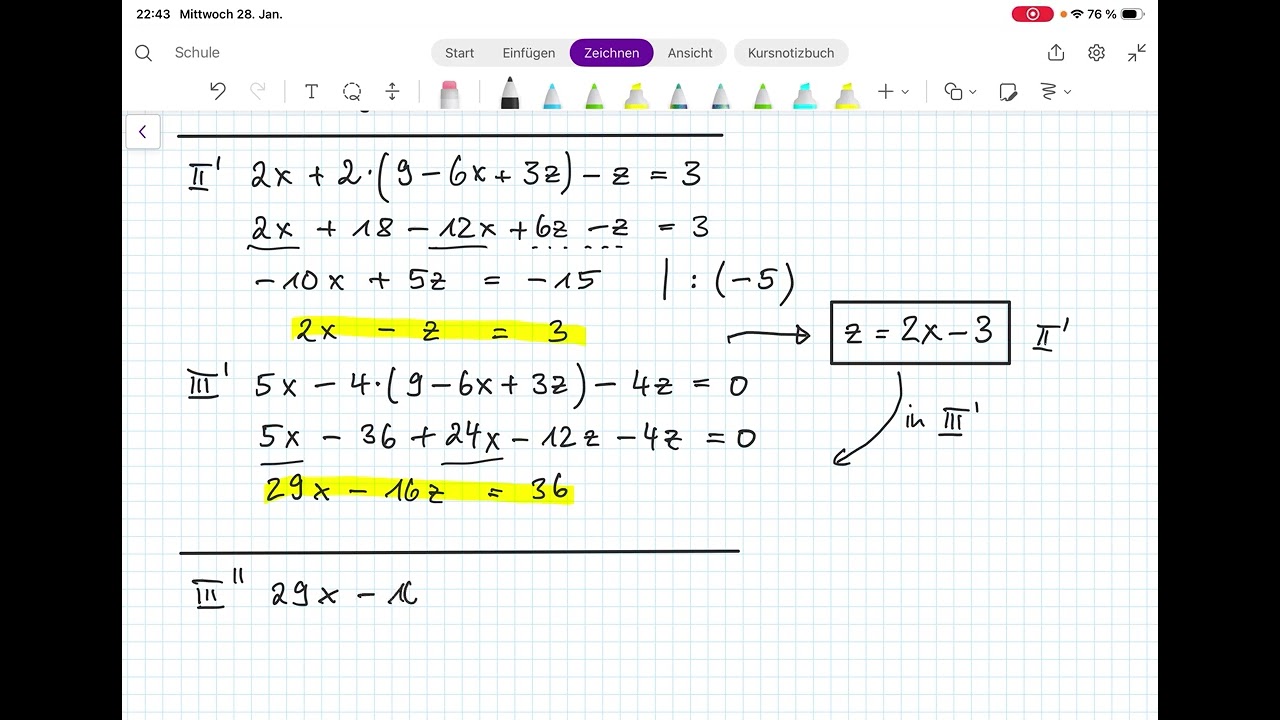 22:43 Mittwoch 28. Jan. 76 %
Schule Start Einfügen Zeichnen Ansicht Kursnotizbuch
T
II' 2x + 2·(9 − 6x + 3z) − z = 3
2x + 18 − 12x + 6z − z = 3
−10x + 5z = −15 | : (−5)
2x − z = 3 → z = 2x − 3 II'
III' 5x − 4·(9 − 6x + 3z) − 4z = 0
in III'
5x − 36 + 24x − 12z − 4z = 0
29x − 16z = 36
III'' 29x − 1